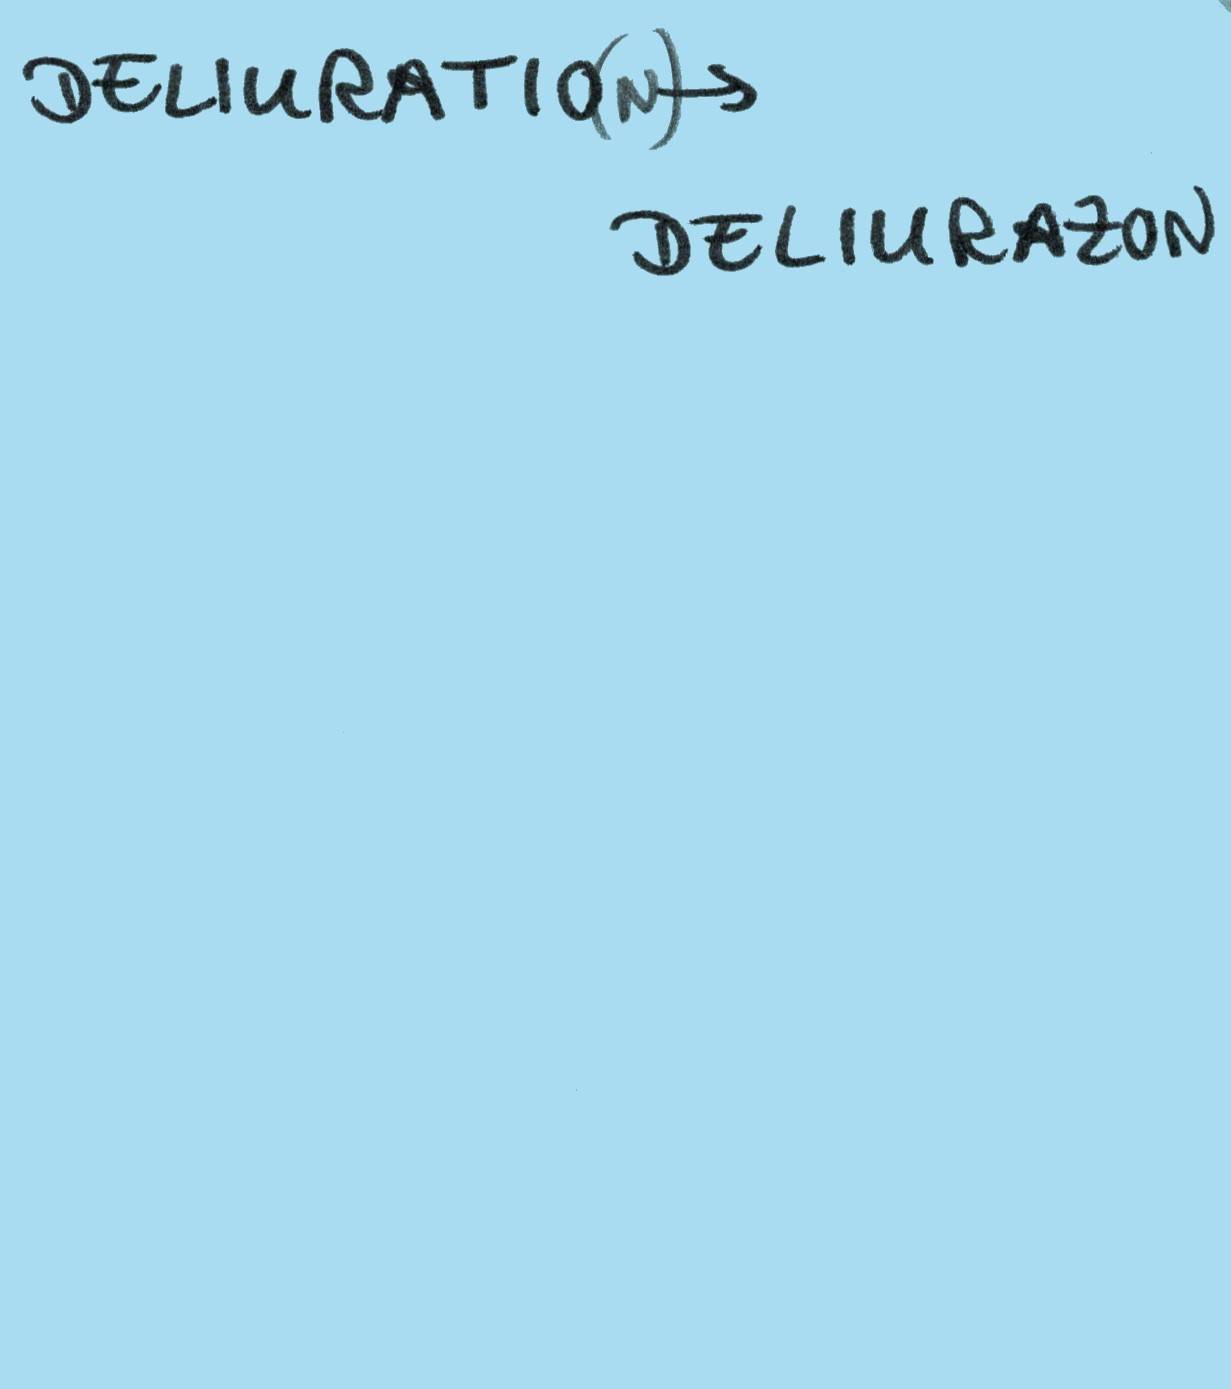 DELIURATIO(N)→
DELIURAZON